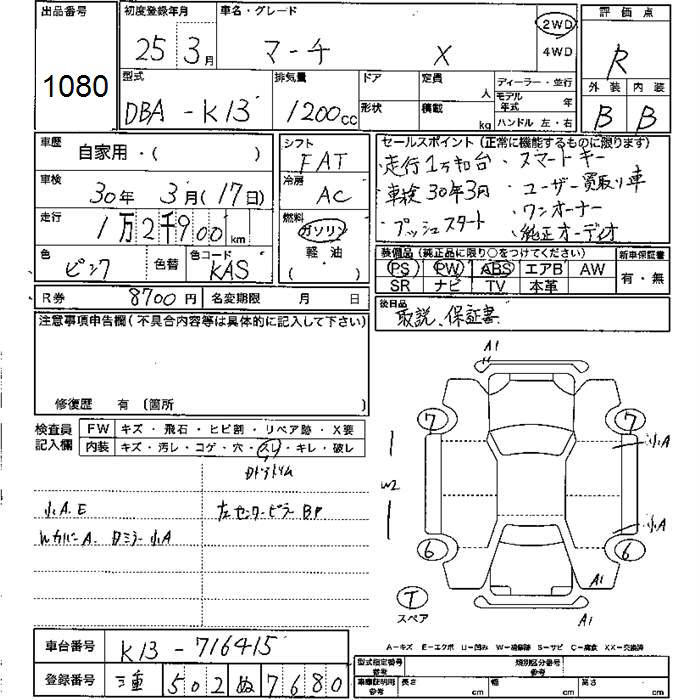 出品番号 初度登録年月 車名・グレード 2WD 4WD 評価点
1080 25 3月 マーチ X R
型式 排気量 ドア 定員 人 ディーラー・並行 外装 内装
DBA-K13 1200cc 形状 積載 kg モデル年式 年 B B
ハンドル 左・右
車歴 自家用・( ) シフト FAT セールスポイント(正常に機能するものに限ります)
車検 30年3月(17日) 冷房 AC ・走行1万キロ台 ・スマートキー
・車検30年3月 ・ユーザー買取り車
走行 1万2千900km 燃料 ガソリン ・プッシュスタート ・ワンオーナー
軽油 ・純正オーディオ
( )
色 ピンク 色替 色コード KAS 装備品(純正品に限り○をつけてください) 新車保証書
PS PW ABS エアB AW 有・無
SR ナビ TV 本革
R券 8700円 名変期限 月 日 後日品
取説、保証書
注意事項申告欄(不具合内容等は具体的に記入して下さい)
修復歴 有 〔箇所 〕
検査員記入欄 FW キズ・飛石・ヒビ割・リペア跡・X要
内装 キズ・汚レ・コゲ・穴・スレ・キレ・破レ
小A.E 左センターピラーBP
A1
7 7
小A
W2
小A
6 6
A1
A1
T
スペア
車台番号 K13-716415
A-キズ E-エクボ U-凹み W-補修跡 S-サビ C-腐食 XX-交換済
登録番号 三重 502 ぬ 7680
型式指定番号 参考 類別区分番号
車庫証明用 参考 長さ cm 幅 cm 高さ cm